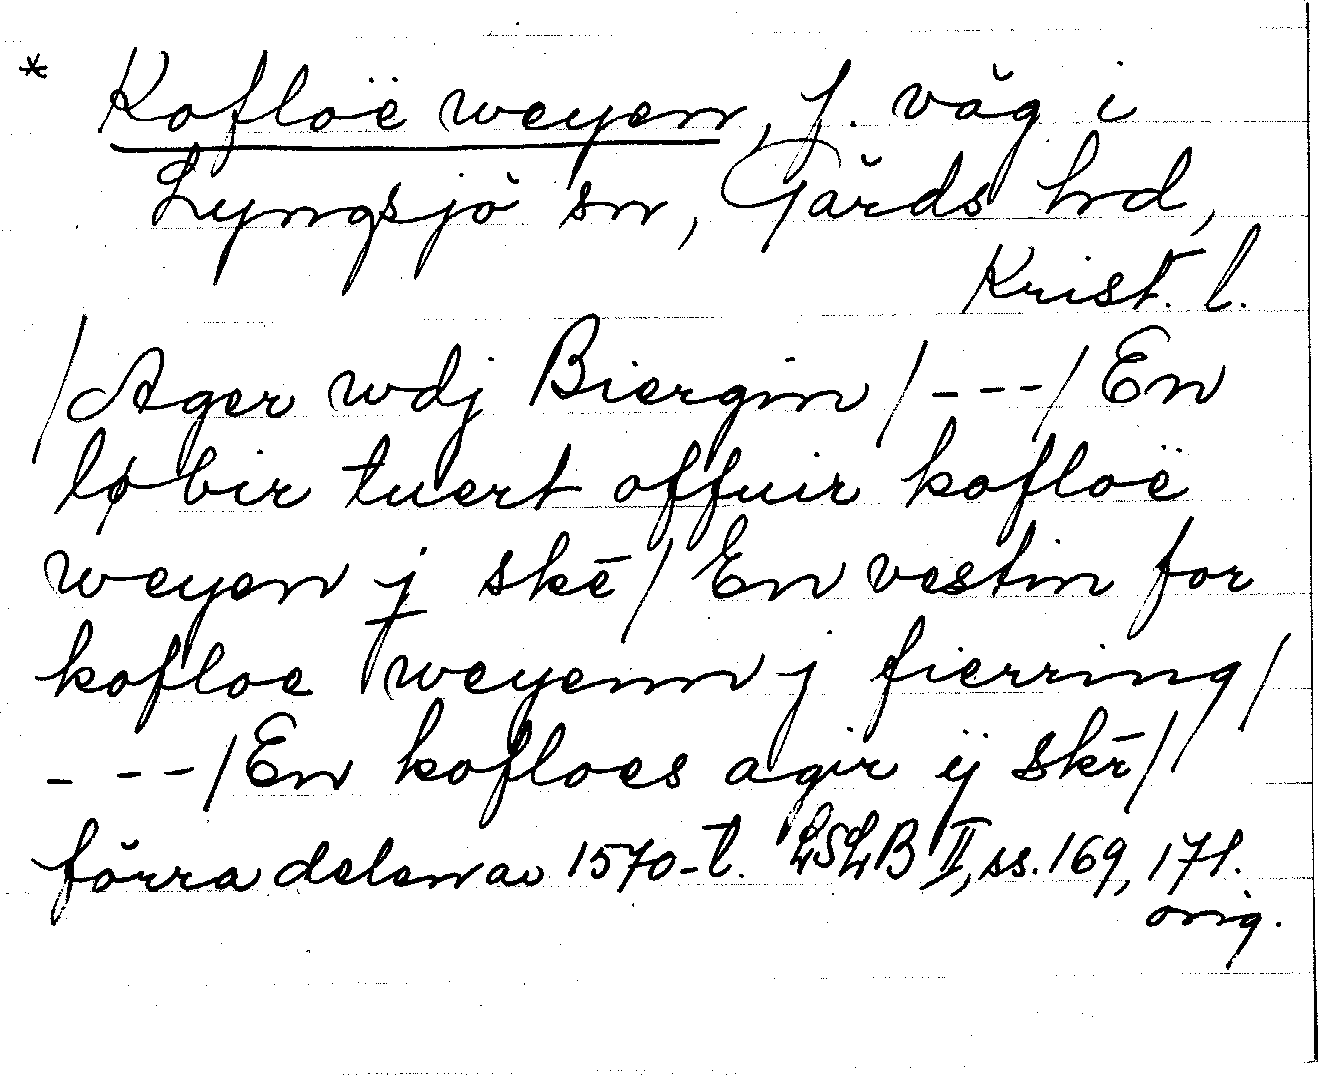 * Kofloë weyen, f. väg i
Lyngsjö sn, Gärds hrd,
Krist. l.
/Ager wdj Biergin/---/En
løbir tuert offuir kofloë
weyen j skē/ En vestin for
kofloe weyenn j fierring/
---/En kofloes agir ij skē/
förra delen av 1570-t. LSLB II, ss. 169, 171.
orig.